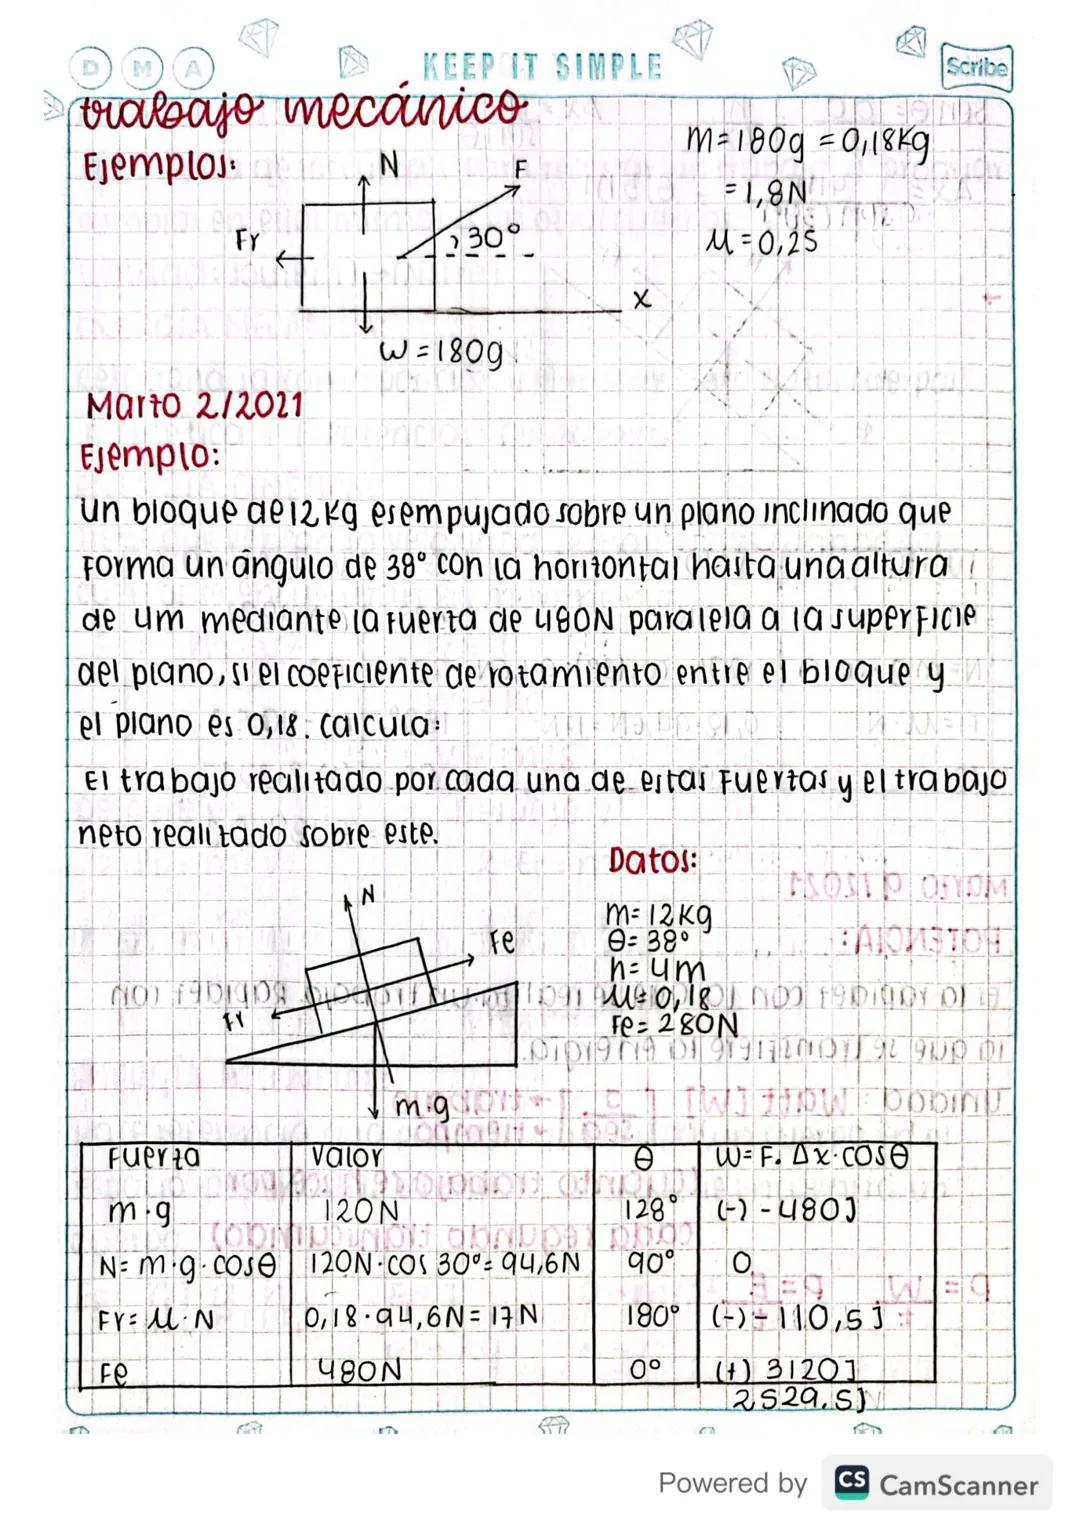 D M A
KEEP IT SIMPLE
Scribe
trabajo mecánico
Ejemplos:
N
F
Fr
30°
x
W = 180g
M = 180g = 0,18Kg
= 1,8N
M = 0,25
Marzo 2/2021
Ejemplo:
un bloque de 12 Kg es empujado sobre un plano inclinado que
forma un ángulo de 38° con la horizontal hasta una altura
de 4m mediante la fuerza de 480N paralela a la superficie
del plano, si el coeficiente de rozamiento entre el bloque y
el plano es 0,18. calcula:
El trabajo realizado por cada una de estas fuerzas y el trabajo
neto realizado sobre este.
Datos:
m= 12Kg
θ= 38°
h= 4m
μ= 0,18
Fe= 280N
N
Fe
Fr
m.g
Fuerza Valor θ W= F. Δx.cosθ
m.g 120N 128° (-) -480J
N= m.g.cosθ 120N.cos 30°= 94,6N 90° 0
Fr= μ.N 0,18.94,6N= 17N 180° (-)- 110,5 J
Fe 480N 0° (+) 3120J
2529.5J
Powered by CS CamScanner